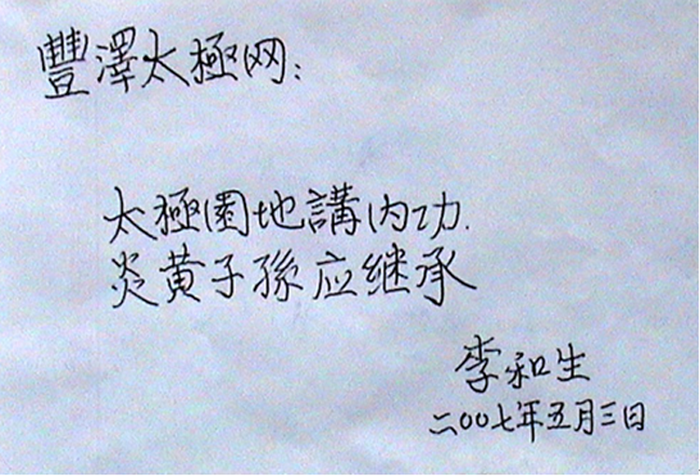 豐澤太極网：
太極園地講内功.
炎黄子孫应继承
李和生
二〇〇七年五月三日